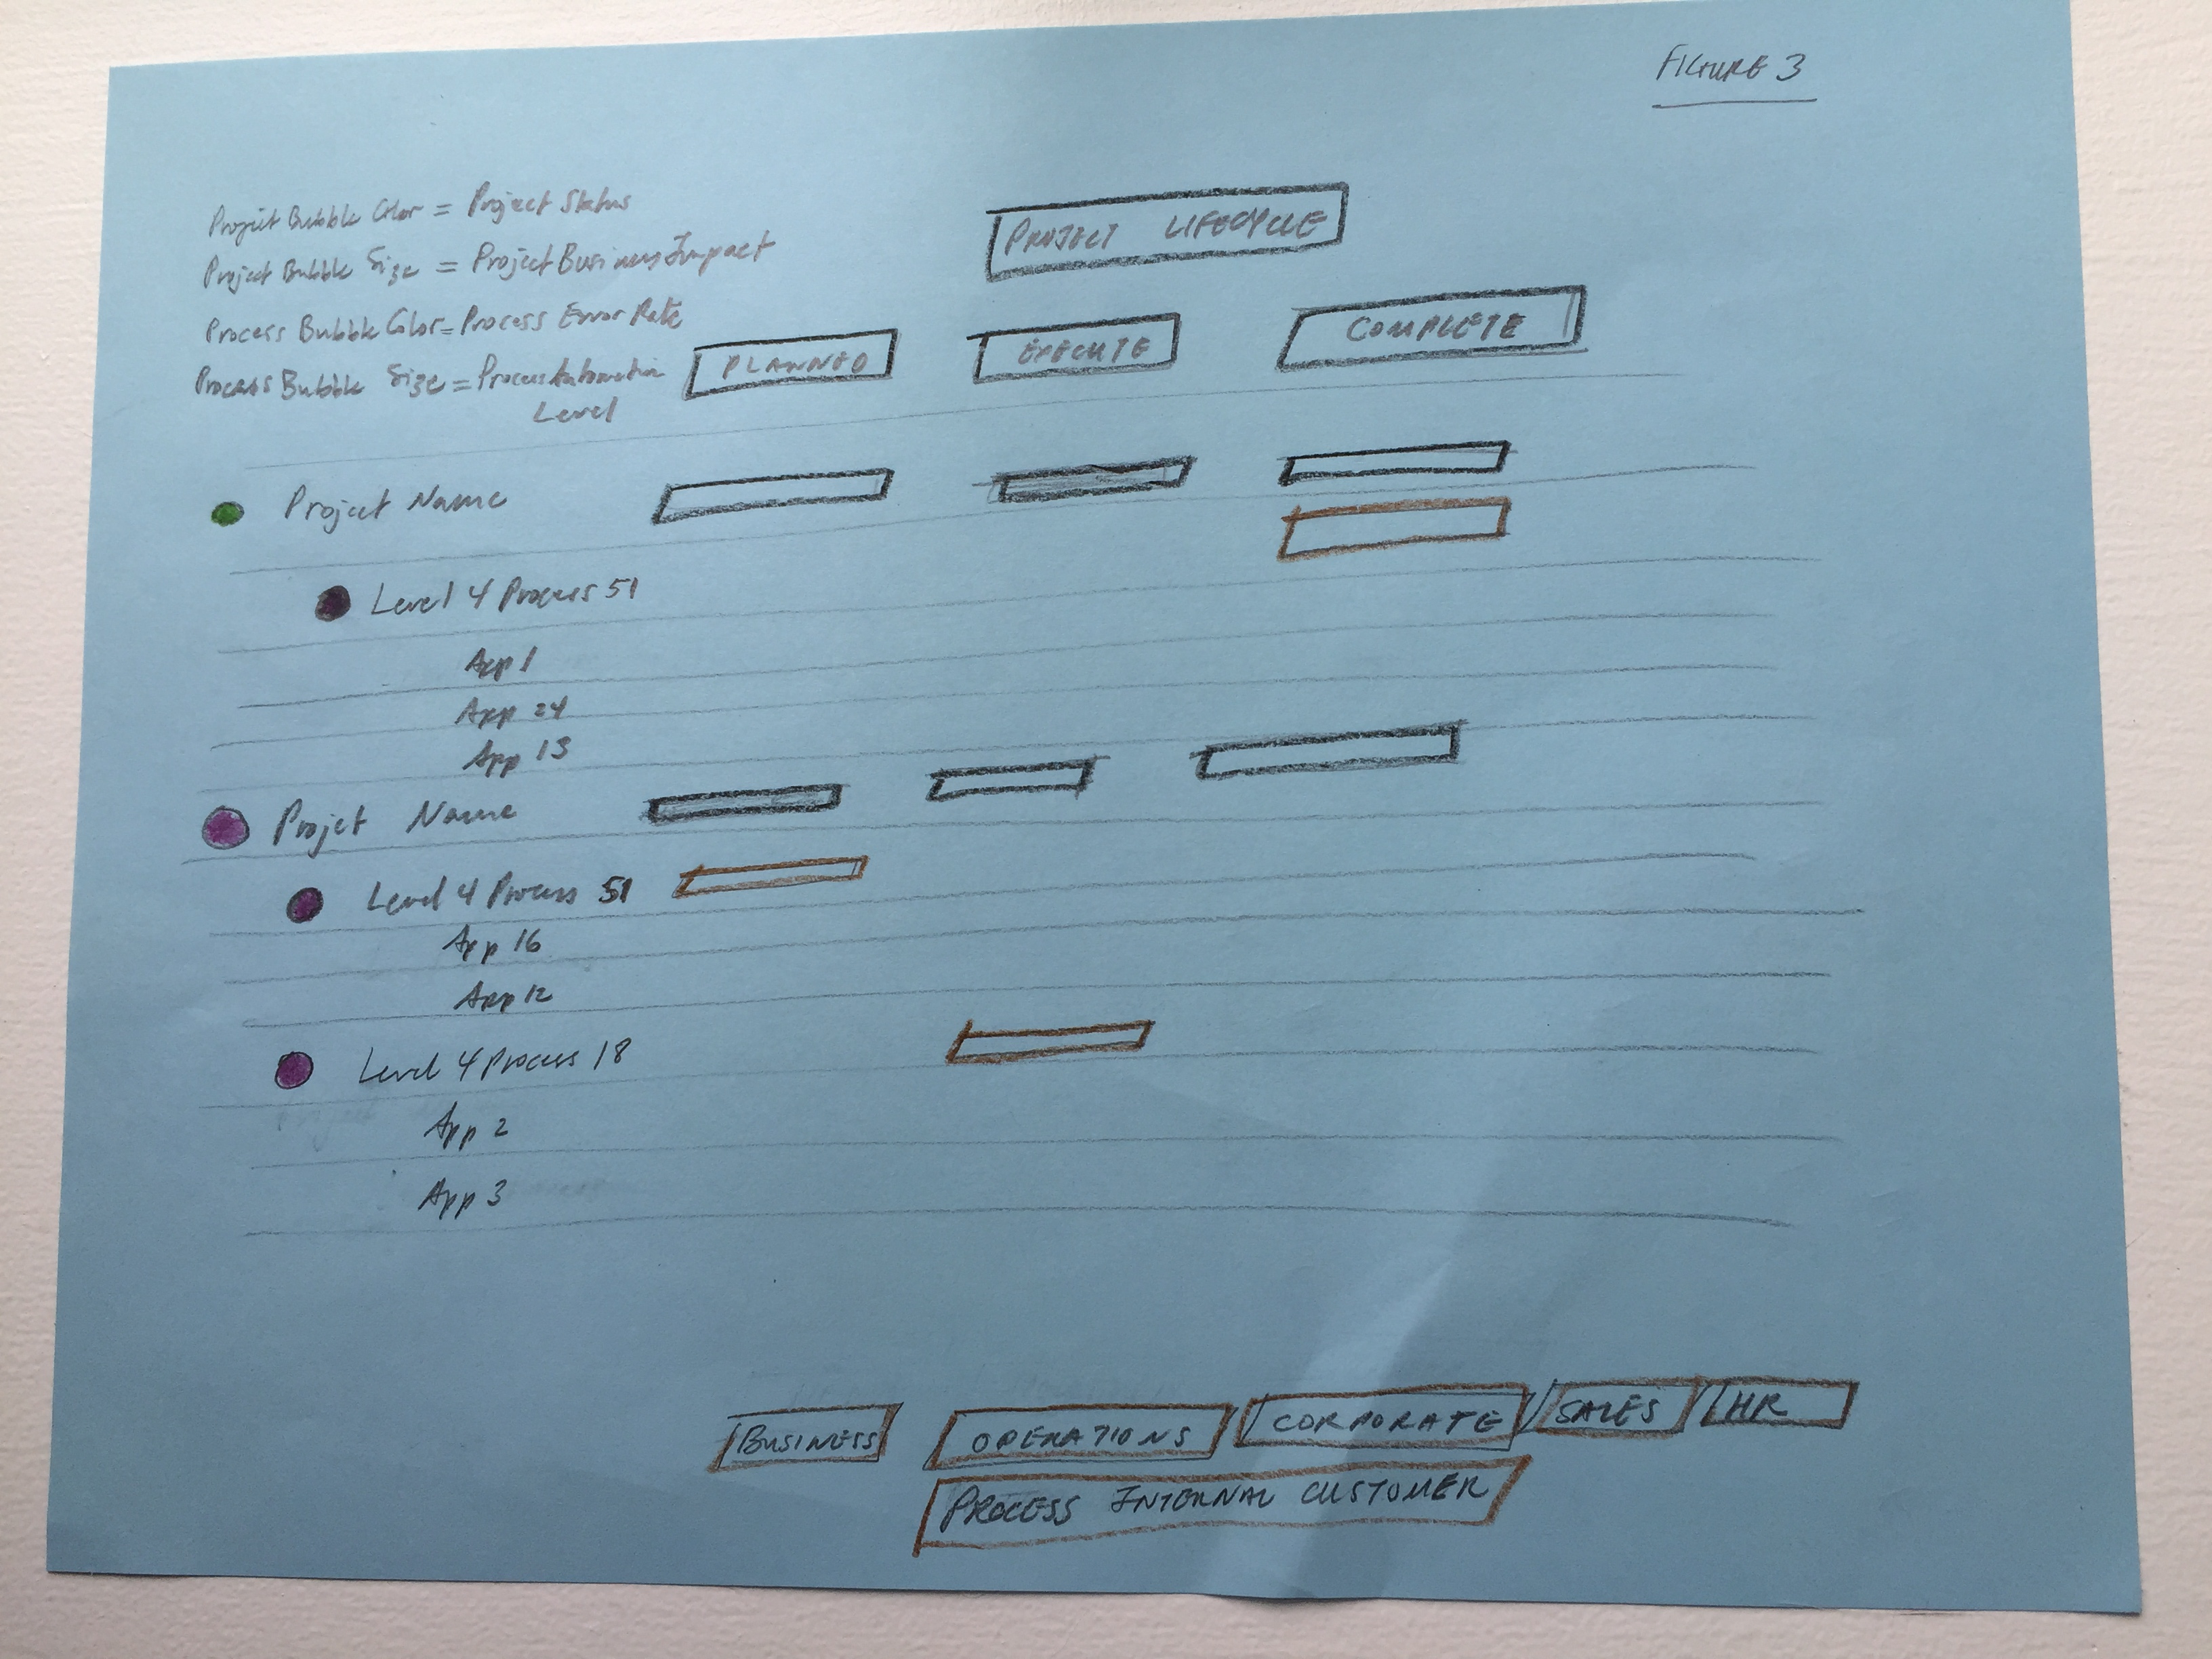 FIGURE 3
Project Bubble Color = Project Status
Project Bubble Size = Project Business Impact
Process Bubble Color = Process Error Rate
Process Bubble Size = Process
Level
PROJECT LIFECYCLE
PLANNED EXECUTE COMPLETE
Project Name
Level 4 Process 51
App 1
App 24
App 15
Project Name
Level 4 Process 51
App 16
App 12
Level 4 Process 18
App 2
App 3
BUSINESS OPERATIONS CORPORATE SALES HR
PROCESS INTERNAL CUSTOMER